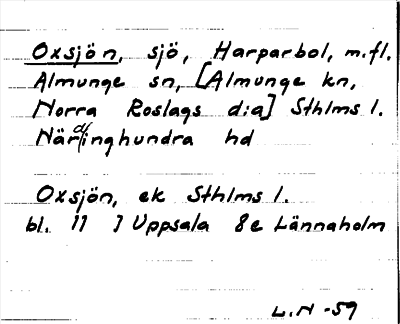 Oxsjön, sjö, Harparbol, m.fl.
Almunge sn, [Almunge kn,
Norra Roslags d:a] Sthlms l.
Närdinghundra hd
Oxsjön, ek Sthlms l.
bl. 11 I Uppsala 8e Lännaholm
L.N -59